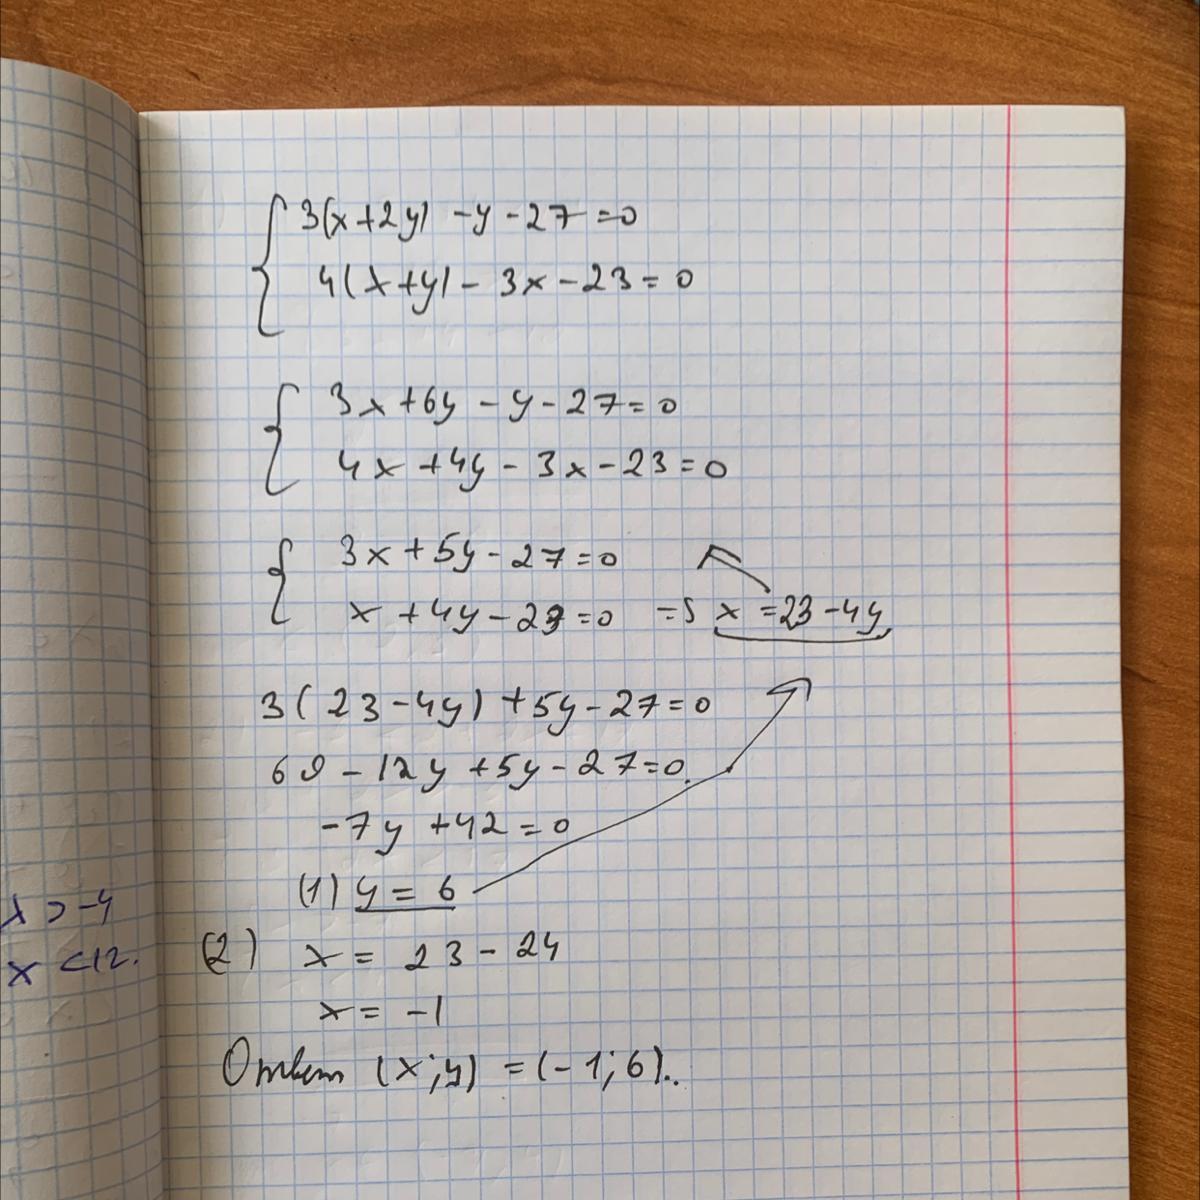 3(x+2y) -y -27 =0
4(x+y) - 3x -23 = 0
3x +6y -y -27=0
4x +4y - 3x -23 = 0
3x + 5y - 27 = 0
x +4y -23 =0 => x =23 -4y
3(23 -4y) +5y -27=0
69 - 12y +5y -27=0
-7y +42 =0
(1) y = 6
(2) x = 23 - 24
x = -1
Ответ (x;y) = (-1;6)..
x > -4
x < 12.